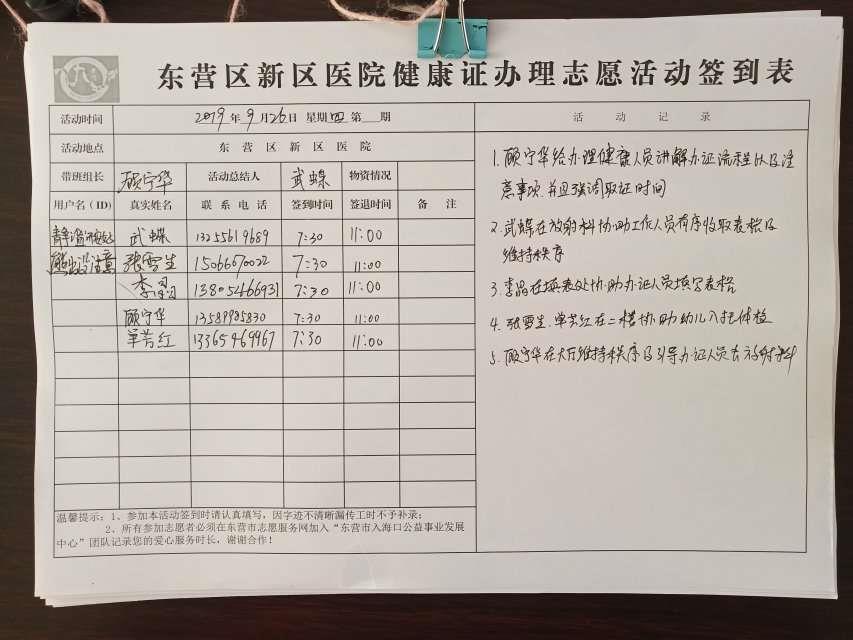 东营区新区医院健康证办理志愿活动签到表
活动时间 2019年9月26日 星期四 第 期 活动记录
活动地点 东营区新区医院
带班组长 顾宁华 活动总结人 武蝶 物资情况
用户名(ID) 真实姓名 联系电话 签到时间 签退时间 备注
武蝶 13255619689 7:30 11:00
张雪生 15066670022 7:30 11:00
李 13805466931 7:30 11:00
顾宁华 13589985830 7:30 11:00
单芳红 13365469967 7:30 11:00
1. 顾宁华给办理健康人员讲解办证流程以及注
意事项,并且强调取证时间
2. 武蝶在放射科协助工作人员有序收取表格及
维持秩序
3. 李晶在填表处协助办证人员填写表格
4. 张雪生、单芳红在二楼协助幼儿入托体检
5. 顾宁华在大厅维持秩序及引导办证人员去放射科
温馨提示:1、参加本活动签到时请认真填写,因字迹不清晰漏传工时不予补录;
2、所有参加志愿者必须在东营市志愿服务网加入“东营市入海口公益事业发展
中心”团队记录您的爱心服务时长,谢谢合作!